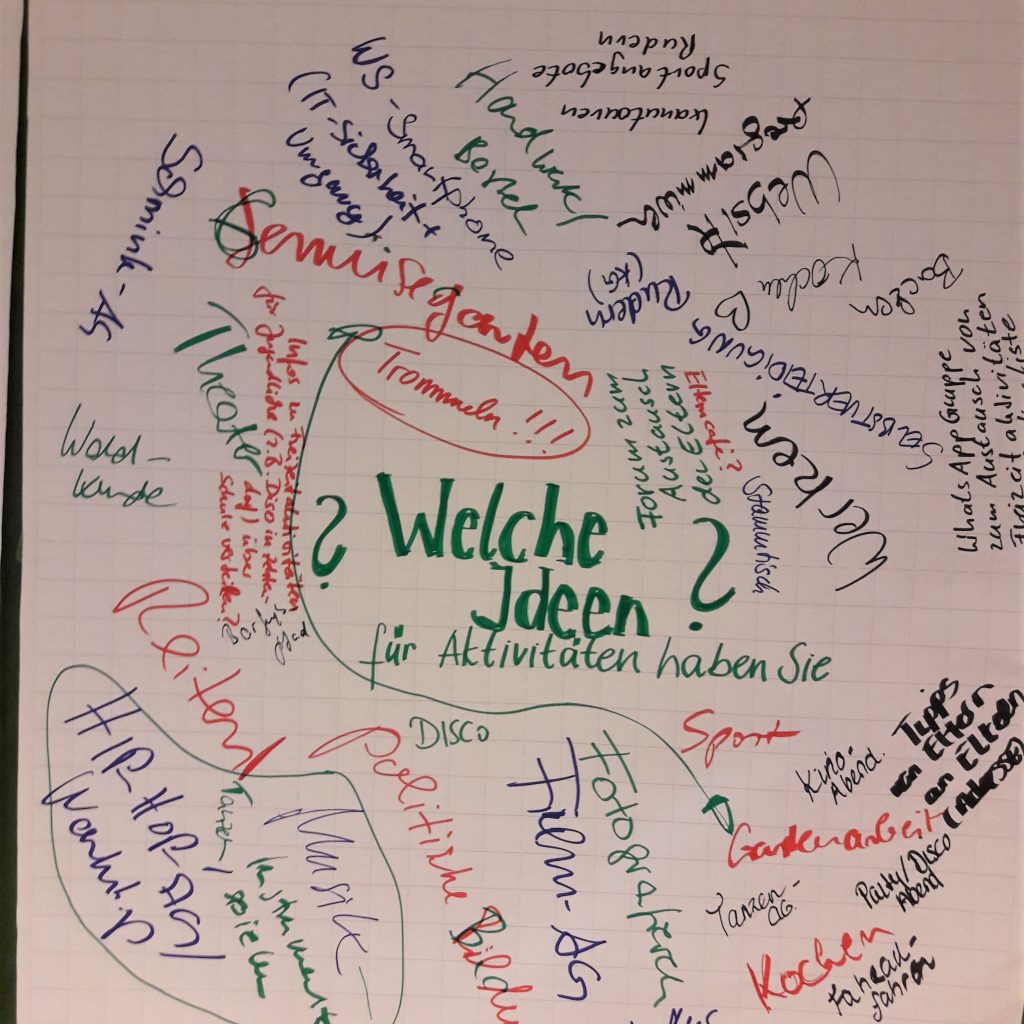 Rudern
Sportangebote
Kanutouren
WS - Smartphone
(IT-Sicherheit +
Umgang)
Handwerk/
Programmier
Website
Schmink-AG
Gemüsegarten
Rudern
(KG)
Kochen
Backen
SELBSTVERTEIDIGUNG
Werken
Trommeln!!!
Theater
Infos zu Freizeitaktivitäten
für Jugendliche (z.B. Disco in
dorf) über
Schule verteilen?
Forum zum
Austausch
der Eltern
Elterncafé?
Stammtisch
WhatsApp Gruppe
zum Austausch von
Wald-
kunde
? Welche
Ideen ?
für Aktivitäten haben Sie
Reiten
HIP-HOP-AG/
Tanzen/
Musik-
Instrumente
spielen
DISCO
Politische
Film-AG
Fotografieren
Sport
Kino-
Abend
Tipps
von Eltern
an Eltern
(Adressen)
Gartenarbeit
Party/Disco
Abend
Tanzen-
AG.
Kochen
Fahrad-
fahren